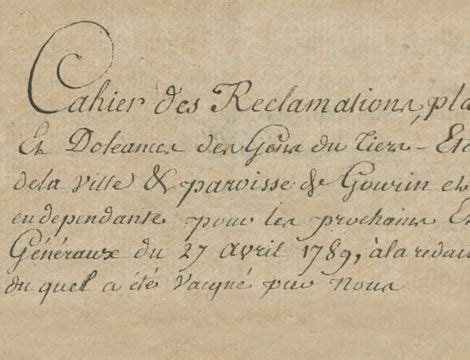 Cahier des Reclamations, pla
Et Doleances des Gens du Tiers-Eta
dela Ville & paroisse de Gourin et
endependante pour les prochains Et
Généraux du 27 avril 1789, à la redact
du quel a été Vacqué par Nous